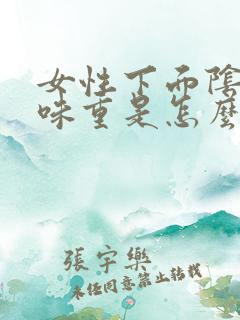 女性下面陰
味重是怎麼
張宇樂
未經同意禁止轉載